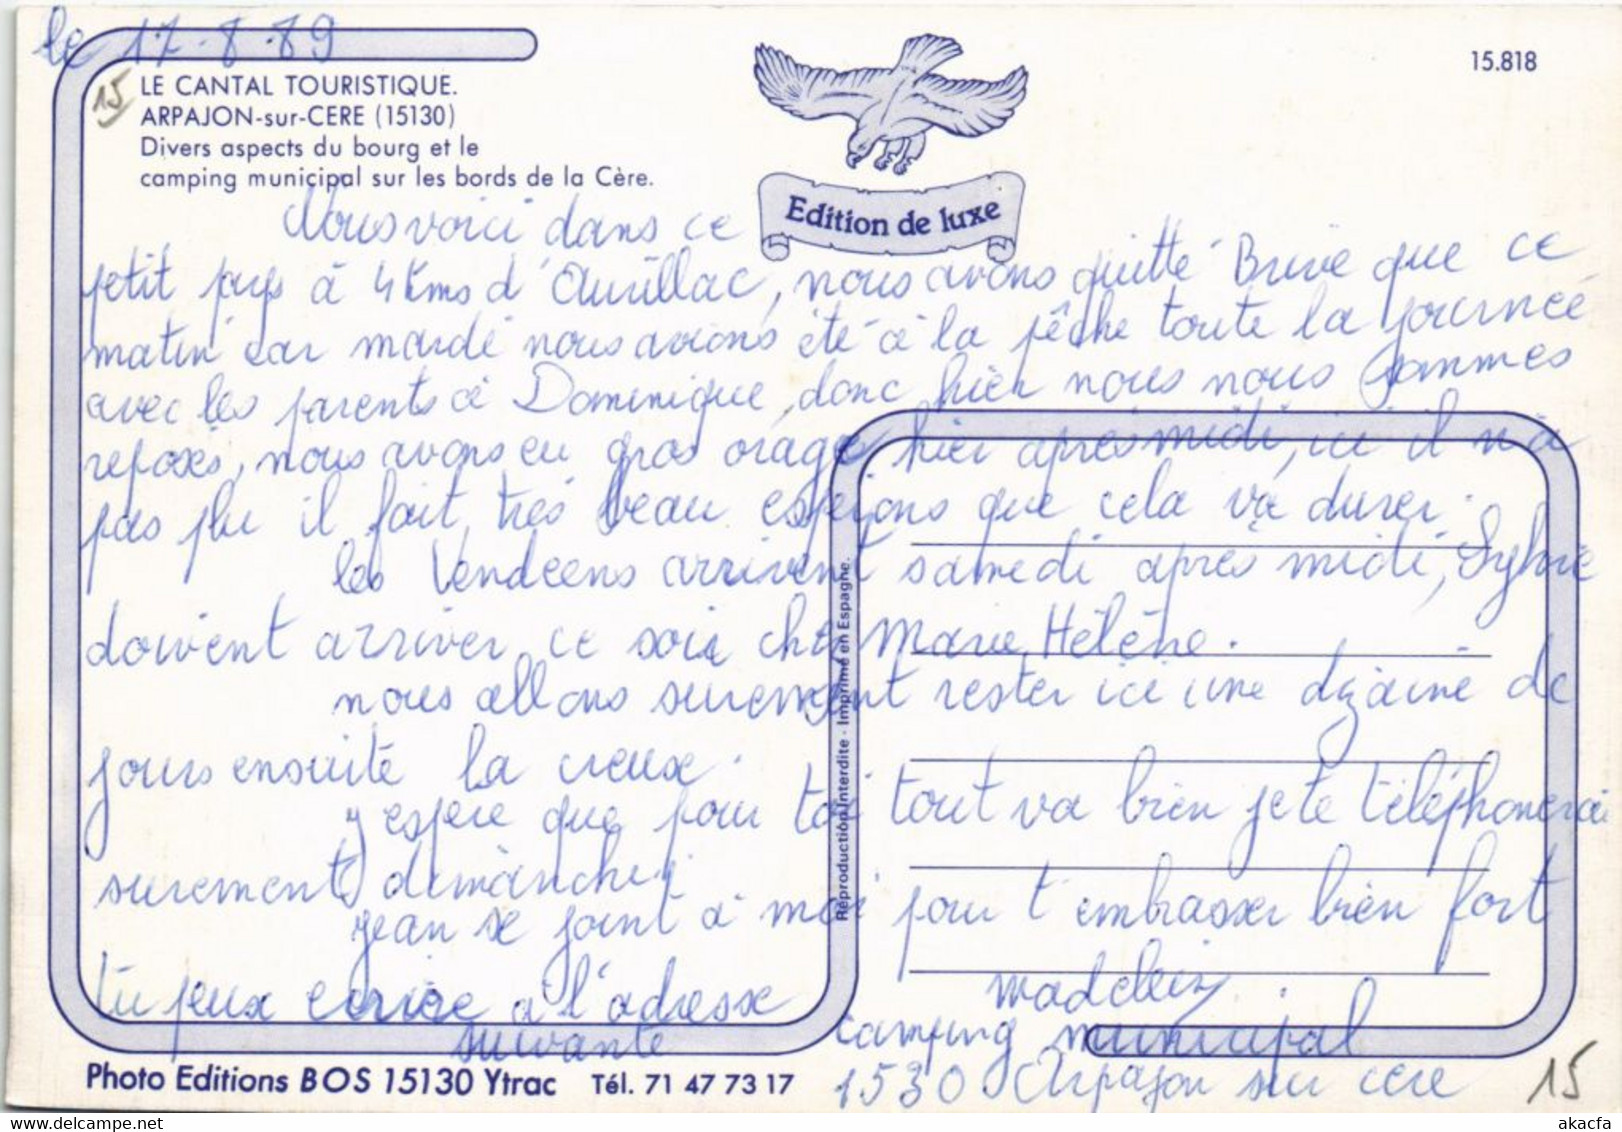 le 17.8.89
15
LE CANTAL TOURISTIQUE.
ARPAJON-sur-CERE (15130)
Divers aspects du bourg et le
camping municipal sur les bords de la Cère.
Edition de luxe
15.818
Nous voici dans ce
petit pays à 4 kms d'Aurillac, nous avons quitté Brive que ce
matin car mardi nous avions été à la pêche toute la journée
avec les parents à Dominique, donc hier nous nous sommes
reposés, nous avons eu gros orage hier après midi, ici il n'a
pas plu il fait très beau espérons que cela va durer.
les Vendéens arrivent samedi après midi, Sylvie
doivent arriver ce soir chez Marie Hélène.
nous allons surement rester ici une dizaine de
jours ensuite la creuse.
j espère que pour toi tout va bien je te téléphonerai
surement dimanche
jean se joint à moi pour t embrasser bien fort
madeleine
tu peux ecrire a l'adresse
suivante
camping municipal
1530 Arpajon sur cere
Reproduction Interdite - Imprimé en Espagne.
Photo Editions BOS 15130 Ytrac Tél. 71 47 73 17
15
www.delcampe.net
akacfa